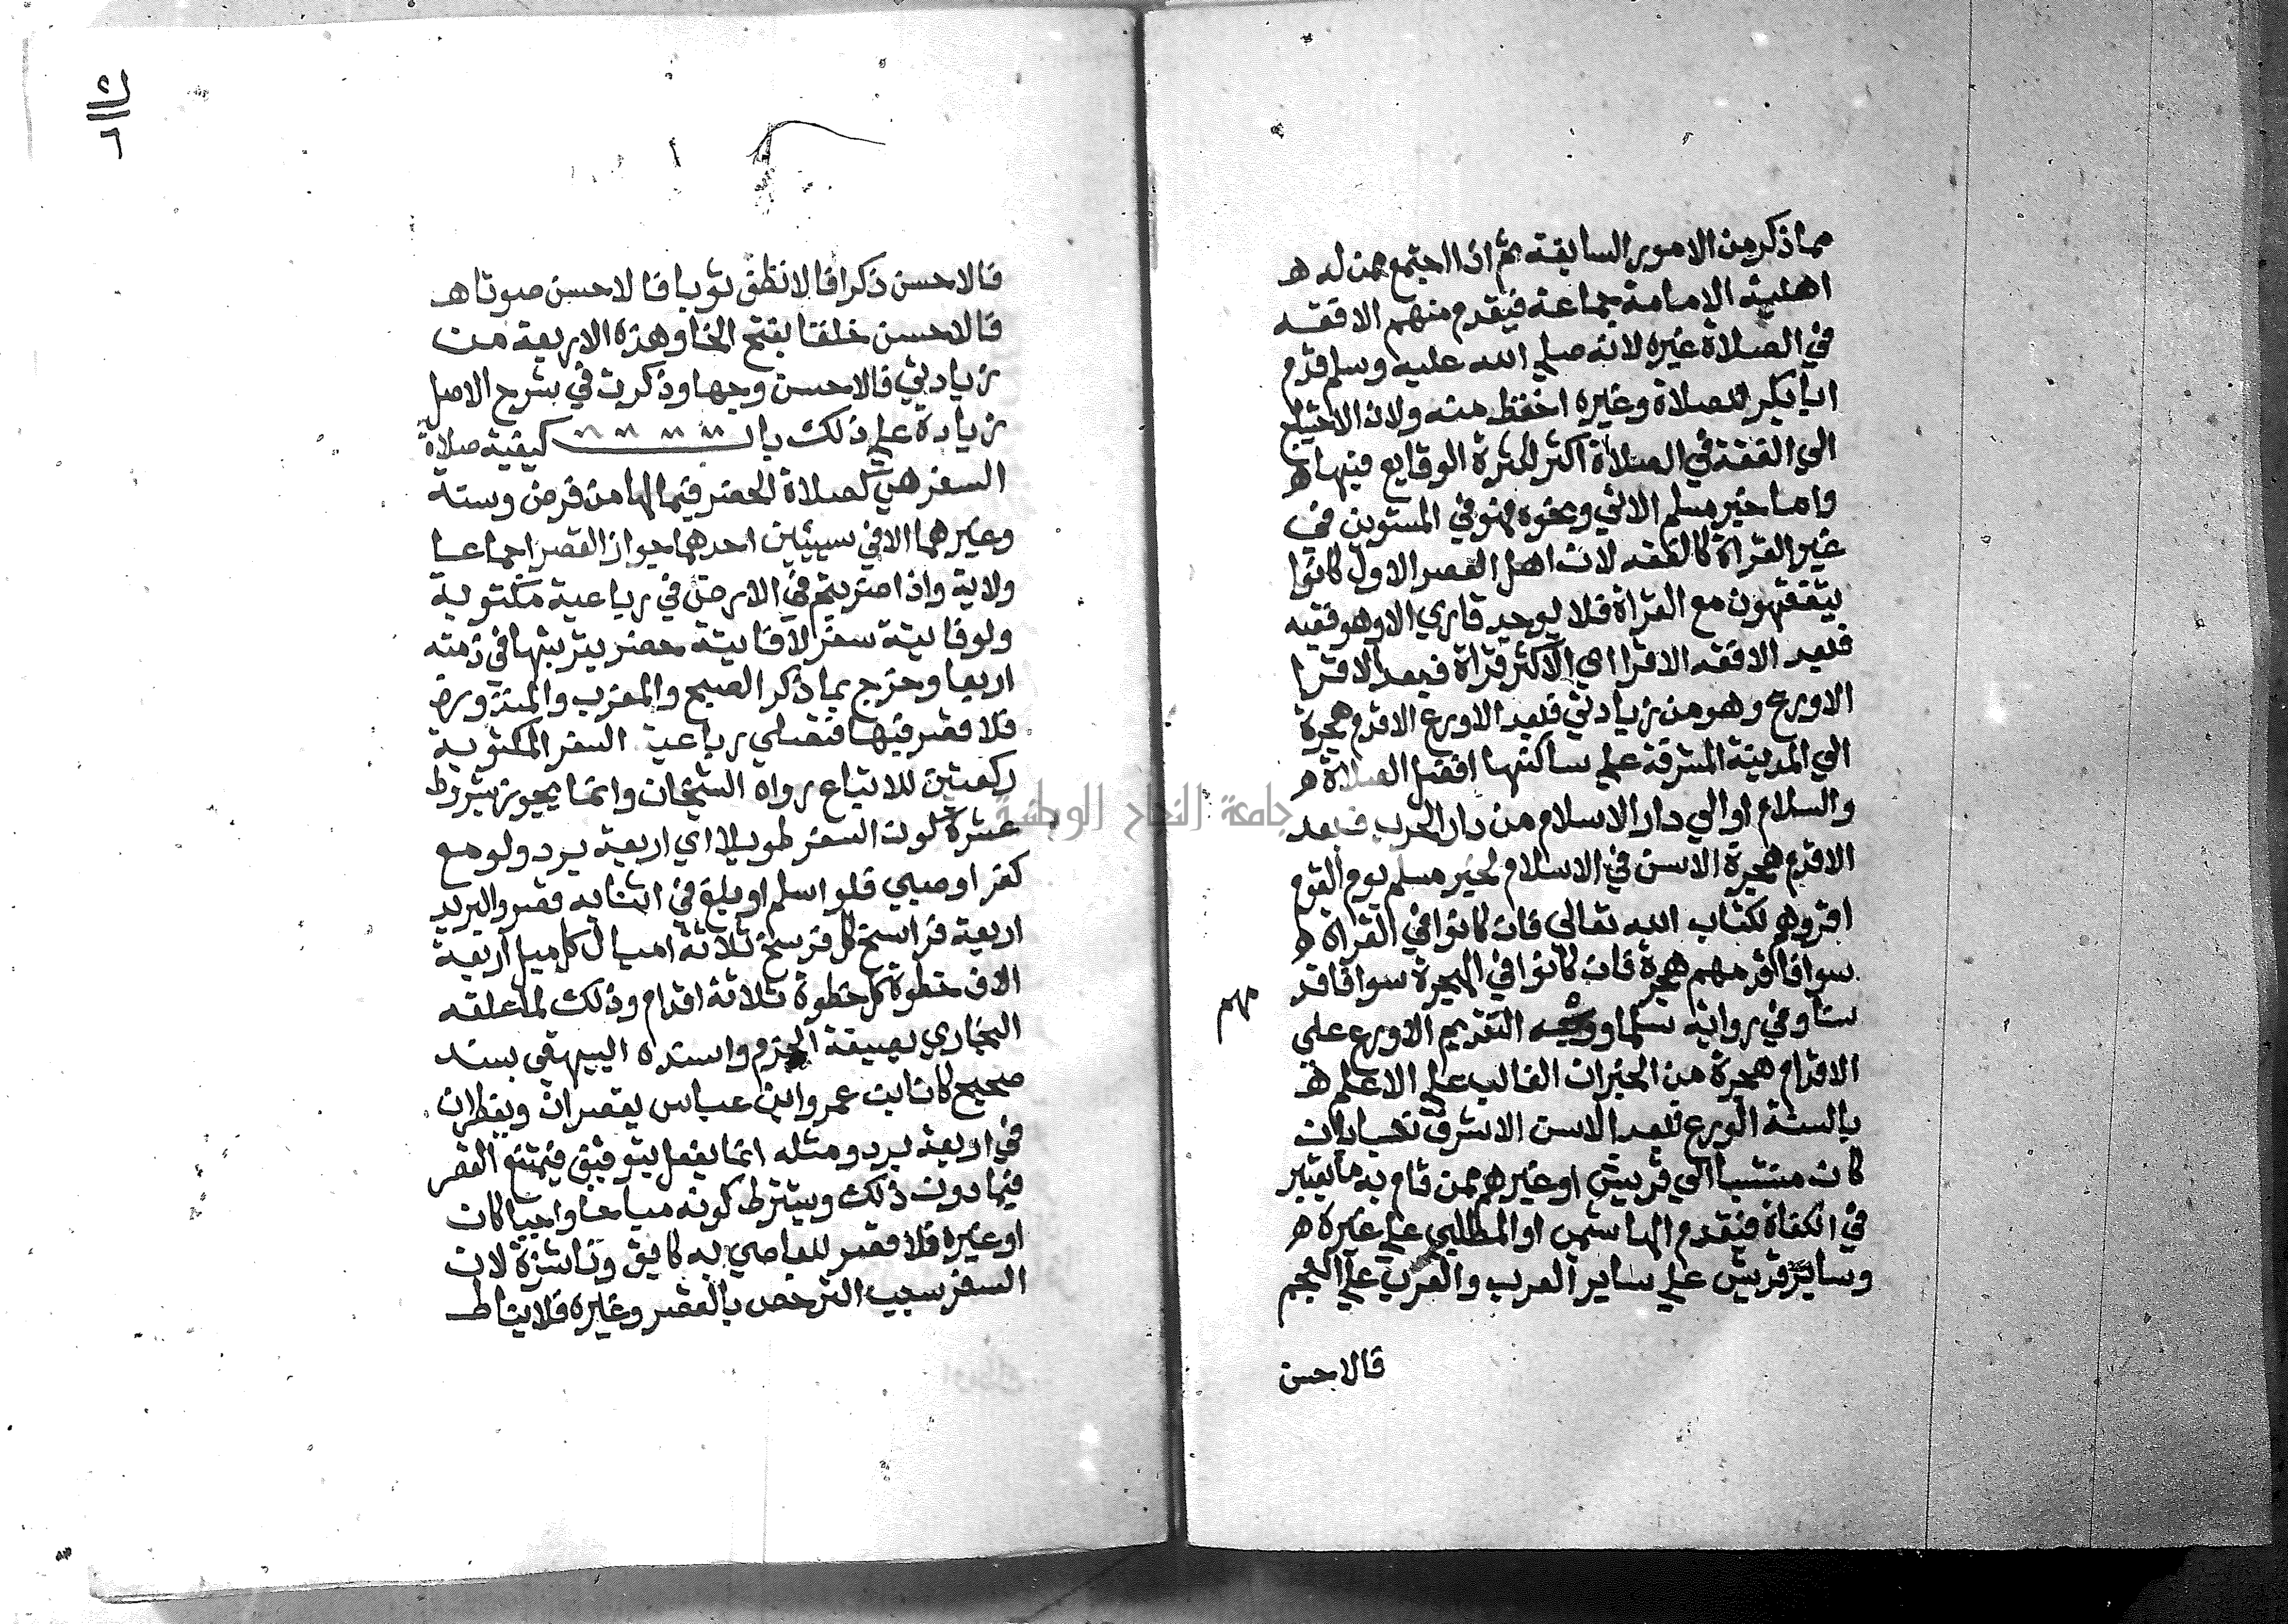 مما ذكر من الامور السابقة ثم اذا اجتمع ممن له ه
اهلية الامامة جماعة فيقدم منهم الافقه
في الصلاة غيره لانه صلي الله عليه وسلم قدم
ابا بكر للصلاة وغيره احفظ منه ولان الاحتياج
الي الفقه في الصلاة اكثر لكثرة الوقايع فيها ه
واما خبر مسلم الاتي ونحوه فهو في المستوين في
غير القراة كالفقه لان اهل العصر الاول كانوا
يتفقهون مع القراة فلا يوجد قاري الا وهو فقيه
فبعد الافقه الاقرا اي الاكثر قراة فبعد الاقرا
الاورع وهو من زيادتي فبعد الاورع الاقدم هجرة
الي المدينة المشرفة علي ساكنها افضل الصلاة ه
والسلام او الي دار الاسلام من دار الحرب فبعد
الاقدم هجرة الاسن في الاسلام لخبر مسلم يوم القوم
اقروهم لكتاب الله تعالي فان كانوا في القراة ه
سوا فاقدمهم هجرة فان كانوا في الهجرة سوا فاقد
مهم
سنا وفي رواية سلما ووجه التقديم الاورع علي
الاقدام هجرة من الخبران الغالب علي الاعلم ه
بالسنة الورع فبعد الاسن الاشرف نسبا بان
كان منتسبا الي قريش او غيرهم ممن قام به ما يعتبر
في الكفاة فيقدم الهاشمي او المطلبي علي غيره ه
وساير قريش علي ساير العرب والعرب علي العجم
فالاحسن
فالاحسن ذكرا فالانظف ثوبا فالاحسن صوتا ه
فالاحسن خلقا بفتح الخا وهذه الاربعة من
زيادتي فالاحسن وجها وذكرت في شرح الاصل
زيادة علي ذلك باب كيفية صلاة
السفر هي كصلاة الحضر فيما لها من فرض وسنة
وغيرهما الا في سيئين احدهما جواز القصر اجماعا
ولاية واذا ضربتم في الارض في رباعية مكتوبة
ولو فايتة سفر لا فايتة حضر يترتبها في ذمته
اربعا وخرج بما ذكر الصبح والمغرب والمنذورة
فلا قصر فيها فتصلي رباعية السفر المكتوبة
ركعتين للاتباع رواه الشيخان وانما يجوز بشروط
عشرة كون السفر طويلا اي اربعة برد ولو مع
كفر او صبي فلو اسلم او بلغ في اثنايه قصر والبريد
اربعة فراسخ كل فرسخ ثلاثة اميال كل ميل اربعة
الاف خطوة كل خطوة ثلاثة اقدام وذلك لما علقه
البخاري بصيغة الجزم واسنده البيهقي بسند
صحيح كان ابن عمر وابن عباس يقصران ويفطران
في اربعة برد ومثله انما يفعل بتوقيف فيمتنع القصر
فيما دون ذلك ويشترط كونه مباحا واجبا كان
او غيره فلا قصر للعاصي به كابق وناشزة لان
السفر سبب الترخص بالقصر وغيره فلا يناط
جامعة النجاح الوطنية